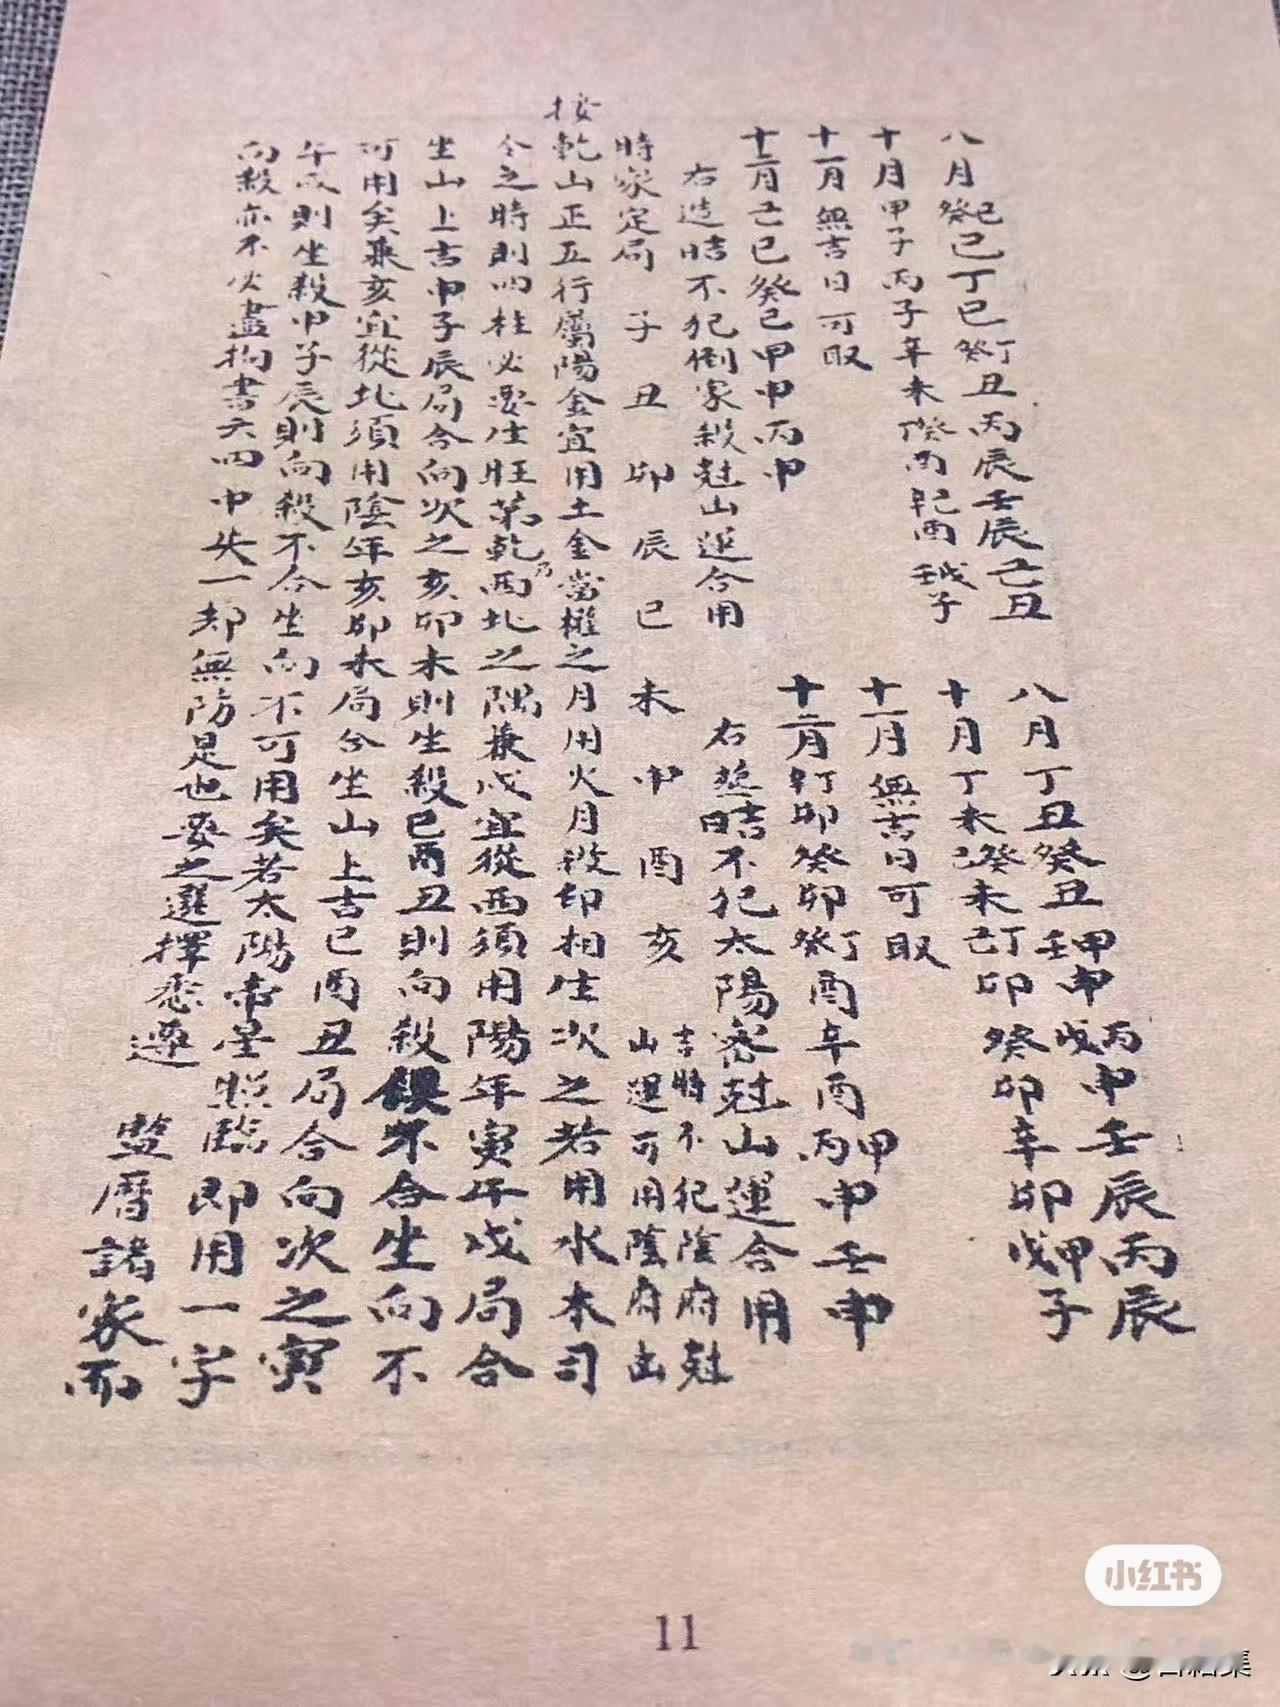 八月癸巳己巳丁巳癸丑丁丑丙辰壬辰己丑
十月甲子丙子辛未癸未丙酉己酉壬子戊子
十一月無吉日可取
十二月己巳癸巳甲申丙申
右造吉日不犯倒家殺尅山運合用
八月丁丑癸丑壬申甲申戊申丙申壬辰丙辰
十月丁未己未癸未己卯丁卯癸卯辛卯戊子甲子
十一月無吉日可取
十二月辛卯丁卯癸卯癸酉丁酉辛酉丙申甲申壬申
右塟吉日不犯太陽密尅山運合用
時家定局 子 丑 卯 辰 巳 未 申 酉 亥 吉時不犯陰府尅山運可用陰府出
按乾山正五行屬陽金宜用土金當權之月用火月殺印相生次之若用水木司
令之時則四柱必要生旺第乾乃西北之隅兼戌宜從西須用陽年寅午戌局合
坐山上吉申子辰局合向次之亥卯未則坐殺巳酉丑則向殺俱不合坐向不
可用矣兼亥宜從北須用陰年亥卯未局合坐山上吉巳酉丑局合向次之寅
午戌則坐殺申子辰則向殺不合坐向不可用矣若太陽帝星照臨即用一字
向殺亦不必盡拘書云四中失一却無防是也要之選擇悉遵 監曆諸家而
11
小红书